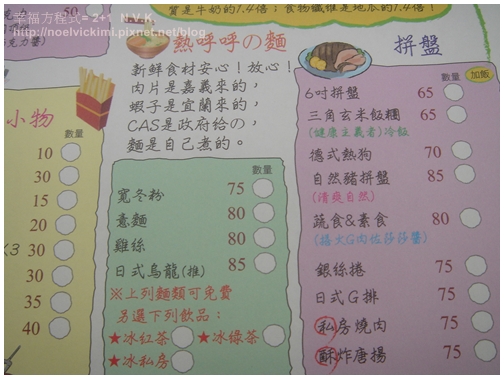 幸福方程式=2+1 N.V.K.
http://noelvickimi.pixnet.net/blog
質是牛奶的1.4倍；食物纖維是地瓜的1.4倍！
50
小物
數量
10
30
15
30
30
35
40
熱呼呼の麵
新鮮食材安心！放心！
肉片是嘉義來的，
蝦子是宜蘭來的，
CAS是政府給の，
麵是自己煮的。
數量
寬冬粉 75
意麵 80
雞絲 80
日式烏龍(推) 85
※上列麵類可免費
另選下列飲品：
★冰紅茶 ★冰綠茶
★冰私房
拼盤
數量 加飯
6吋拼盤 65
三角玄米飯糰 65
(健康主義者)冷飯
德式熱狗 70
自然豬拼盤 85
(清爽自然)
蔬食&素食 80
銀絲捲 75
日式G排 75
私房燒肉 75
酥炸唐揚 75